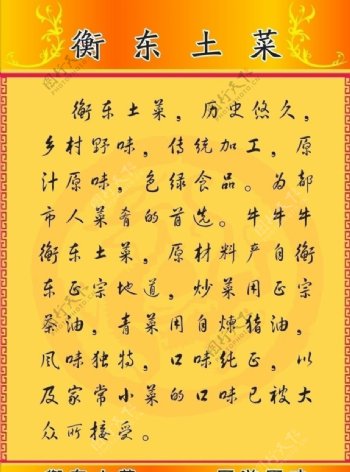 衡东土菜
衡东土菜，历史悠久，
乡村野味，传统加工，原
汁原味，色绿食品。为都
市人菜肴的首选。牛牛牛
衡东土菜，原材料产自衡
东正宗地道，炒菜用正宗
茶油，青菜用自煉猪油，
风味独特，口味纯正，以
及家常小菜的口味已被大
众所接受。